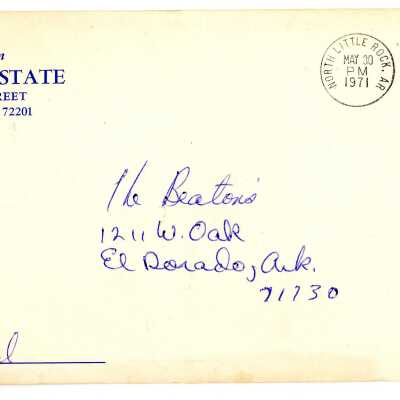 STATE
REET
72201
NORTH LITTLE ROCK, AR
MAY 30
PM
1971
The Beaton's
1211 W. Oak
El Dorado, Ark.
71730